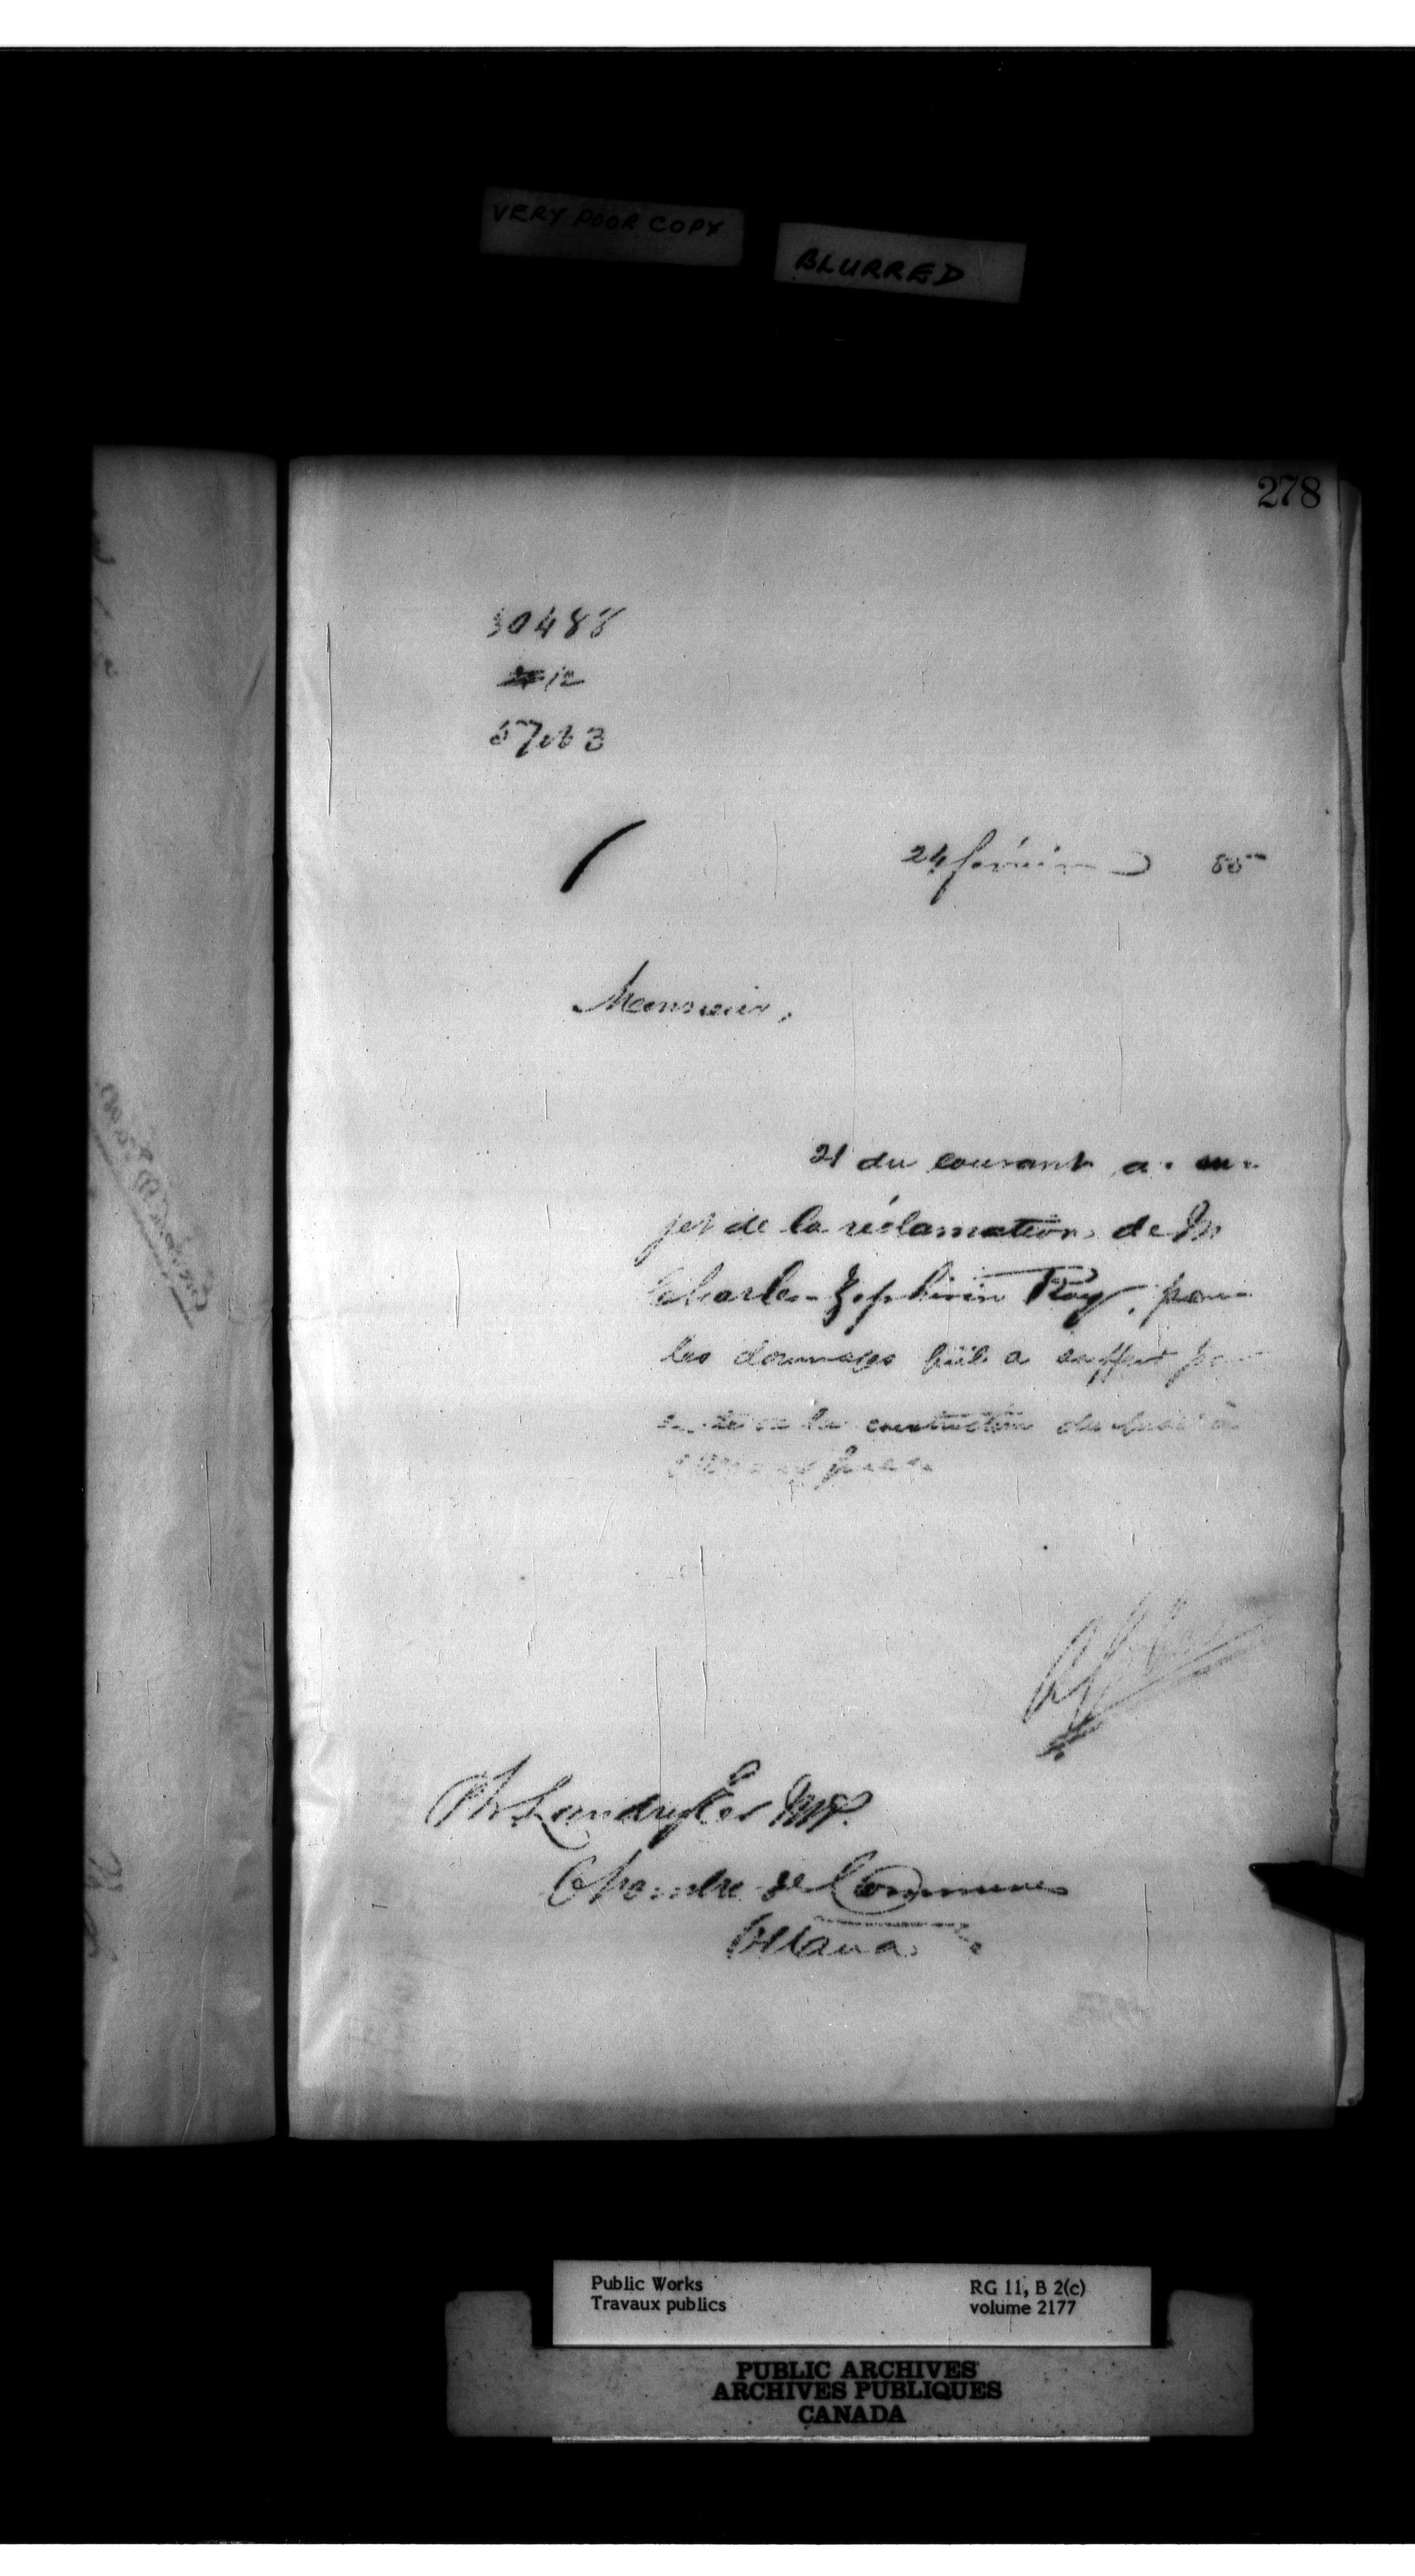 VERY POOR COPY
BLURRED
278
30488
12
57063
24 février 85
Monsieur,
21 du courant au su-
jet de la réclamation de M
Charles-Zephirin Roy, pour
les dommages qu'il a souffert par
suite de la construction du quai à
Ph. Landry Esr M.P.
Chambre des Communes
Ottawa.
Public Works
Travaux publics
RG 11, B 2(c)
volume 2177
PUBLIC ARCHIVES
ARCHIVES PUBLIQUES
CANADA